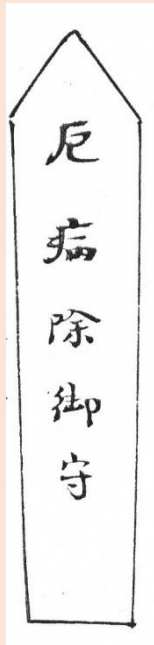 厄病除御守